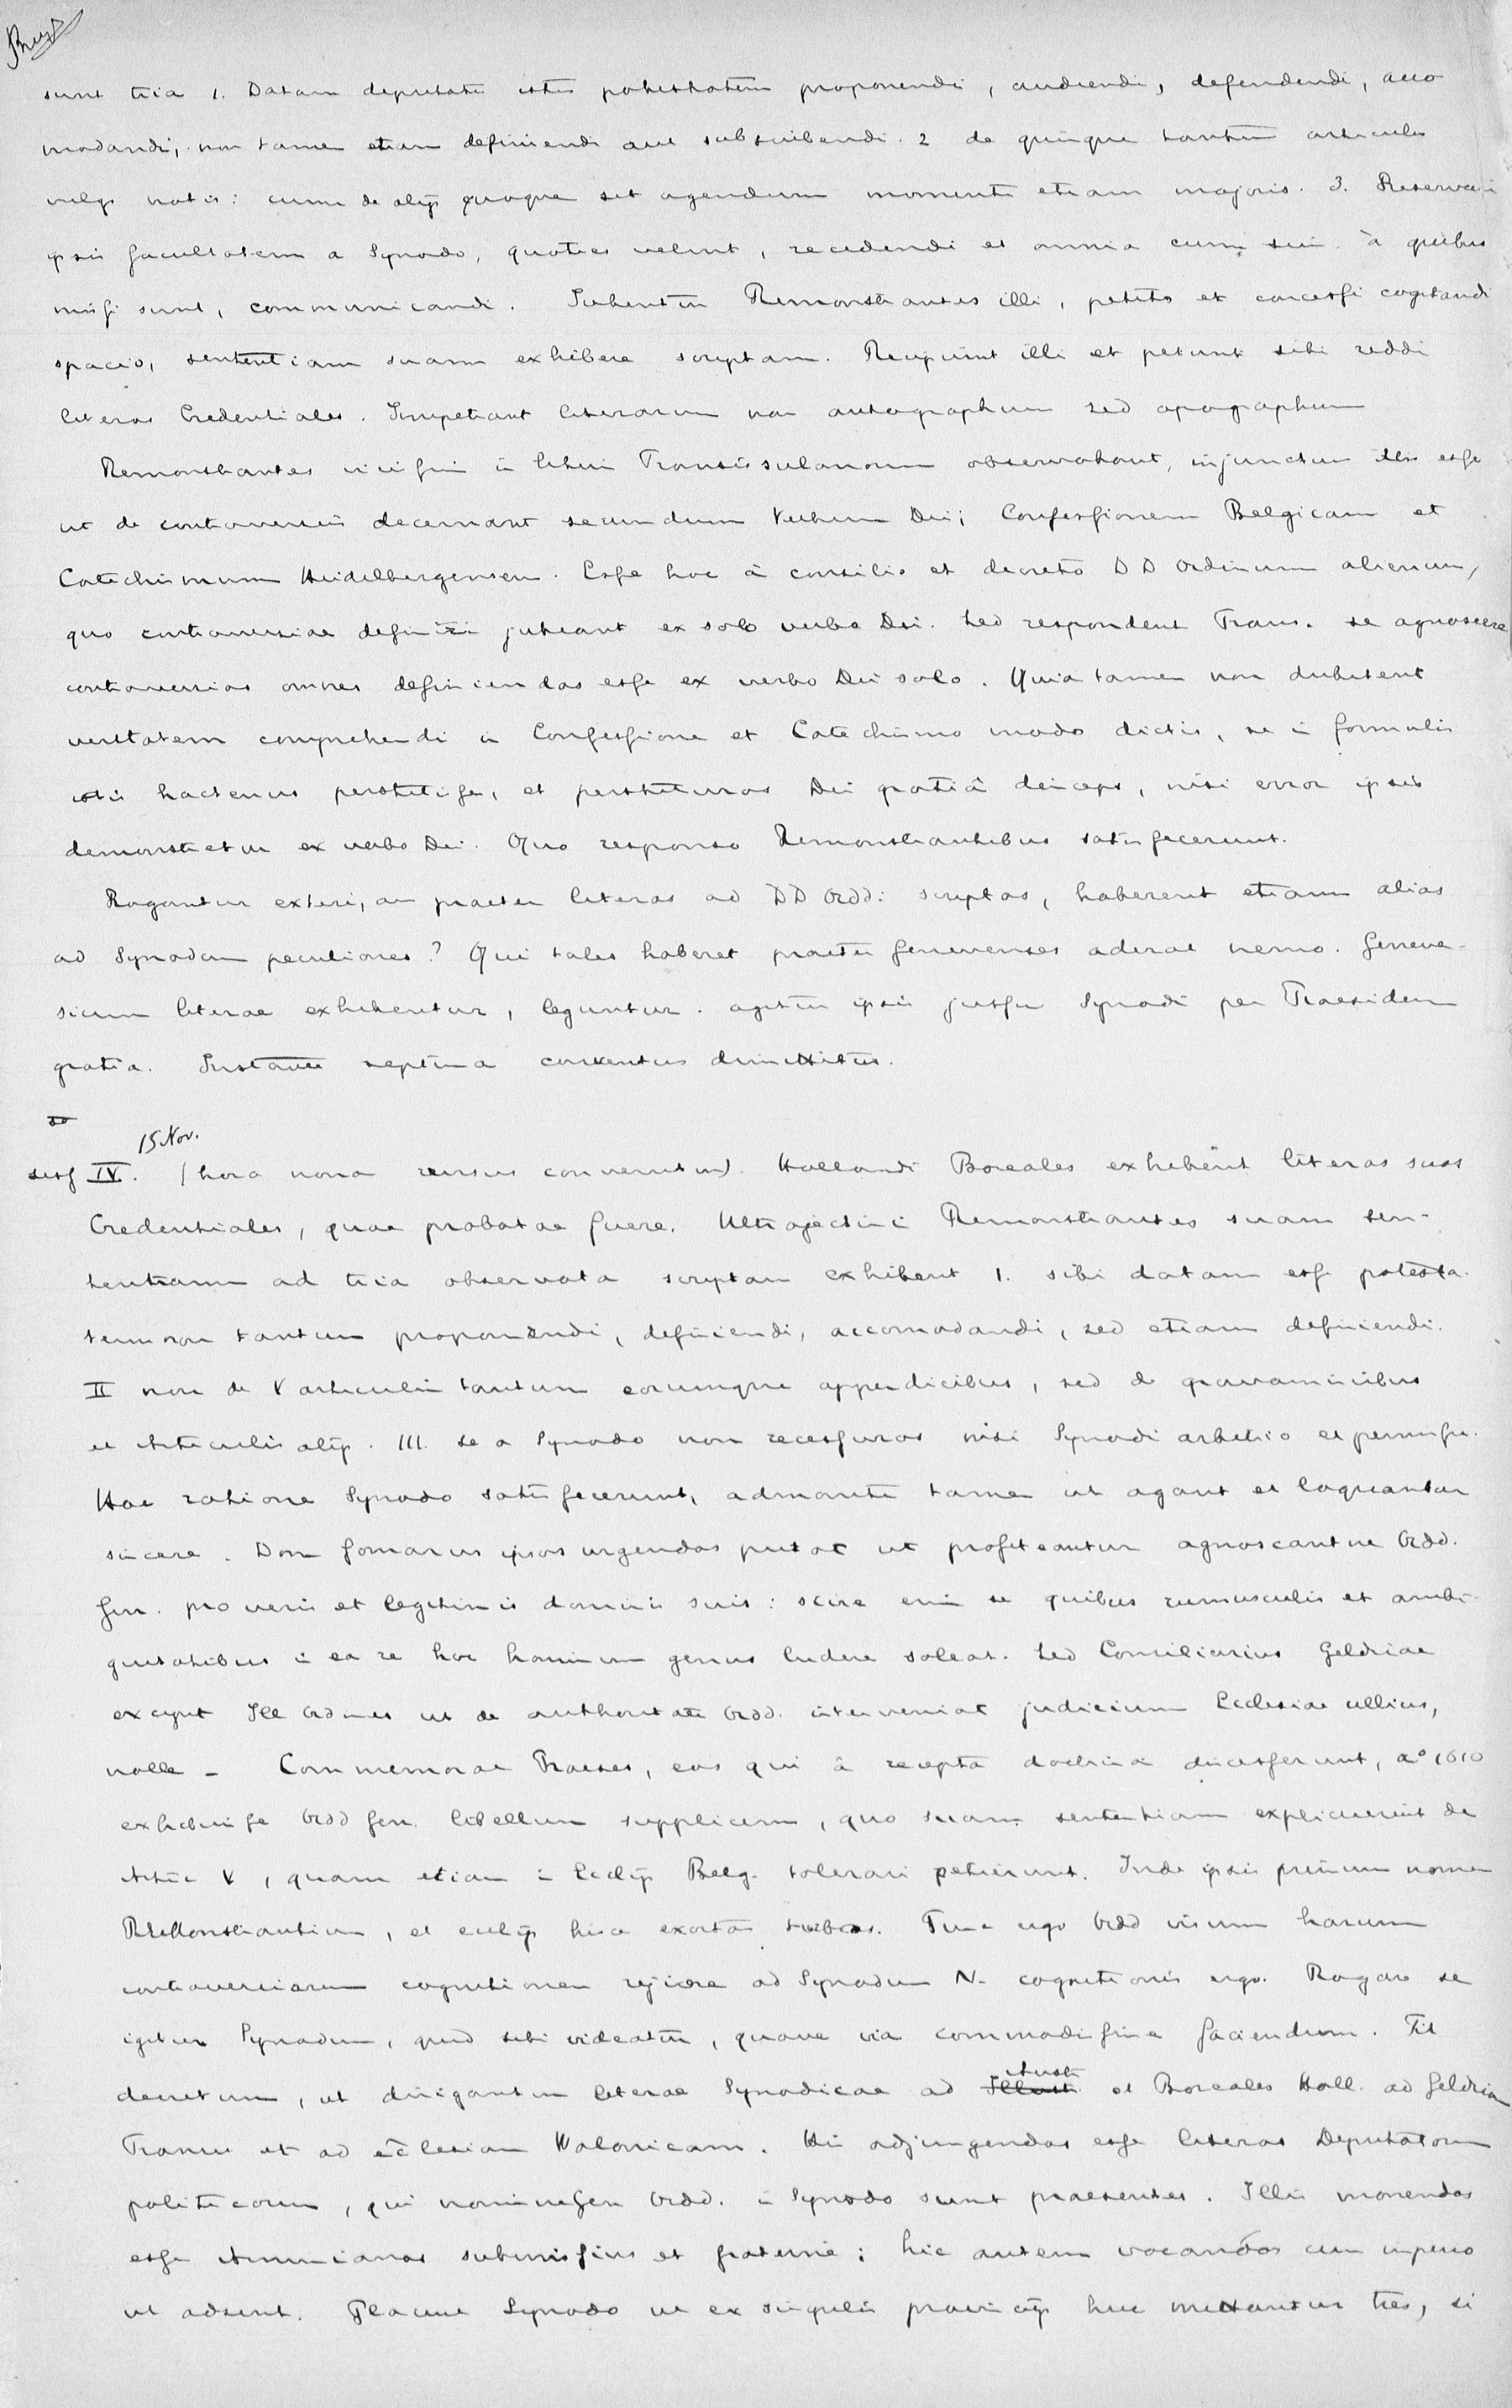 sunt tria 1. Datam deputatis istis potestatem proponendi, audiendi, defendendi, acco
modandi, non tamen etiam definiendi aut subscribendi. 2 de quinque tantum articulis
vulgo notis: cum de alijs quoque sit agendum momenti etiam majoris. 3. Reservari
ipsis facultatem a Synodo, quoties velint, recedendi et omnia cum suis à quibus
missi sunt, communicandi. Jubentur Remonstrantes illi, petito et concesso cogitandi
spacio, sententiam suam exhibere scriptam. Recipiunt illi et petunt sibi reddi
literas Credentiales. Impetrant literarum non autographum sed apographum
Remonstrantes vicissim in literis Transisulanorum observabant, injunctum illis esse
ut de controversiis decernant secundum Verbum Dei; Confessionem Belgicam et
Catechismum Heidelbergensem. Esse hoc à consilio et decreto DD Ordinum alienum,
quo controversiae definiri jubeant ex solo verbo Dei. Sed respondent Trans. se agnoscere
controversias omnes definiendas esse ex verbo Dei solo. Quia tamen non dubitent
veritatem comprehendi in Confessione et Catechismo modo dictis, se in formulis
istis hactenus perstitisse, et perstituros Dei gratiâ deinceps, nisi error ipsis
demonstretur ex verbo Dei. Quo responso Remonstrantibus satisfecerunt.
Rogantur exteri, an praeter literas ad DD Ordd: scriptas, haberent etiam alias
ad Synodum peculiares? Qui tales haberet praeter Genevenses aderat nemo. Geneven-
sium literae exhibentur, leguntur. agitur ipsis jussu Synodi per Praesidem
gratia. Instante septima conventus dimittitur.
15 Nov.
sess IV. (hora nona rursus convenitur) Hollandi Boreales exhibent literas suas
Credentiales, quae probatae fuere. Ultrajectini Remonstrantes suam sen-
tentiam ad tria observata scriptam exhibent 1. sibi datam esse potesta-
tem non tantum proponendi, definiendi, accomodandi, sed etiam definiendi.
II non de V articulis tantum eorumque appendicibus, sed de gravaminibus
et Articulis alijs. III. se a Synodo non recessuros nisi Synodi arbitrio et permissu.
Hac ratione Synodo satisfecerunt, admoniti tamen ut agant et loquantur
sincere. Dom Gomarus ipsos urgendos putat ut profiteantur agnoscantne Ordd.
Gen. pro veris et legitimis dominis suis: scire enim se quibus rumusculis et ambi-
guitatibus in ea re hoc hominum genus ludere soleat. Sed Consiliarius Geldriae
excepit Ill Ordines ut de authoritate Ordd. interveniat judicium Ecclesiae ullius,
nolle - Commemorat Praeses, eos qui à recepta doctrina discesserunt, aº 1610
exhibuisse Ordd Gen. libellum supplicem, quo suam sententiam explicuerint de
Artic V, quam etiam in Ecclijs Belg. tolerari petierunt. Inde ipsis primum nomen
Remonstrantium, et ecclijs hisce exortas turbas. Tunc ergo Ordd visum harum
controversiarum cognitionem rejicere ad Synodum N. cognitionis ergo. Rogare se
igitur Synodum, quid sibi videatur, quave via commodissime faciendum. Fit
decretum, ut dirigantur literae Synodicae ad Austr. et Boreales Holl. ad Geldriam
Transis et ad ecclesiam Walonicam. His adjungendas esse literas Deputatorum
politicorum, qui nomine Gen Ordd. in Synodo sunt praesentes. Illis monendos
esse Arminianos submissius et fraterne; hic autem vocandos cum imperio
ut adsint. Placuit Synodo ut ex singulis provincijs huc mittantur tres, si